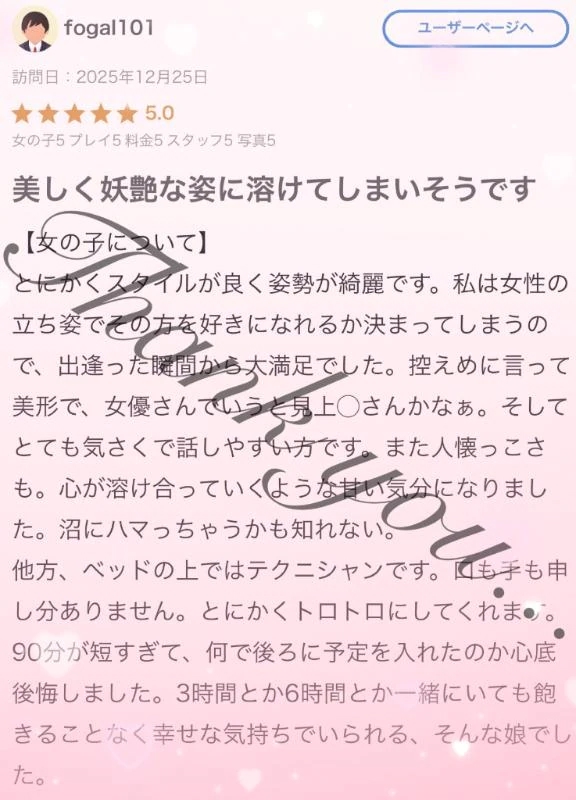 fogal101
ユーザーページへ
訪問日：2025年12月25日
★★★★★ 5.0
女の子5 プレイ5 料金5 スタッフ5 写真5
美しく妖艶な姿に溶けてしまいそうです
【女の子について】
とにかくスタイルが良く姿勢が綺麗です。私は女性の
立ち姿でその方を好きになれるか決まってしまうの
で、出逢った瞬間から大満足でした。控えめに言って
美形で、女優さんでいうと見上◯さんかなぁ。そして
とても気さくで話しやすい方です。また人懐っこさ
も。心が溶け合っていくような甘い気分になりまし
た。沼にハマっちゃうかも知れない。
他方、ベッドの上ではテクニシャンです。口も手も申
し分ありません。とにかくトロトロにしてくれます。
90分が短すぎて、何で後ろに予定を入れたのか心底
後悔しました。3時間とか6時間とか一緒にいても飽
きることなく幸せな気持ちでいられる、そんな娘でし
た。
Thank you....